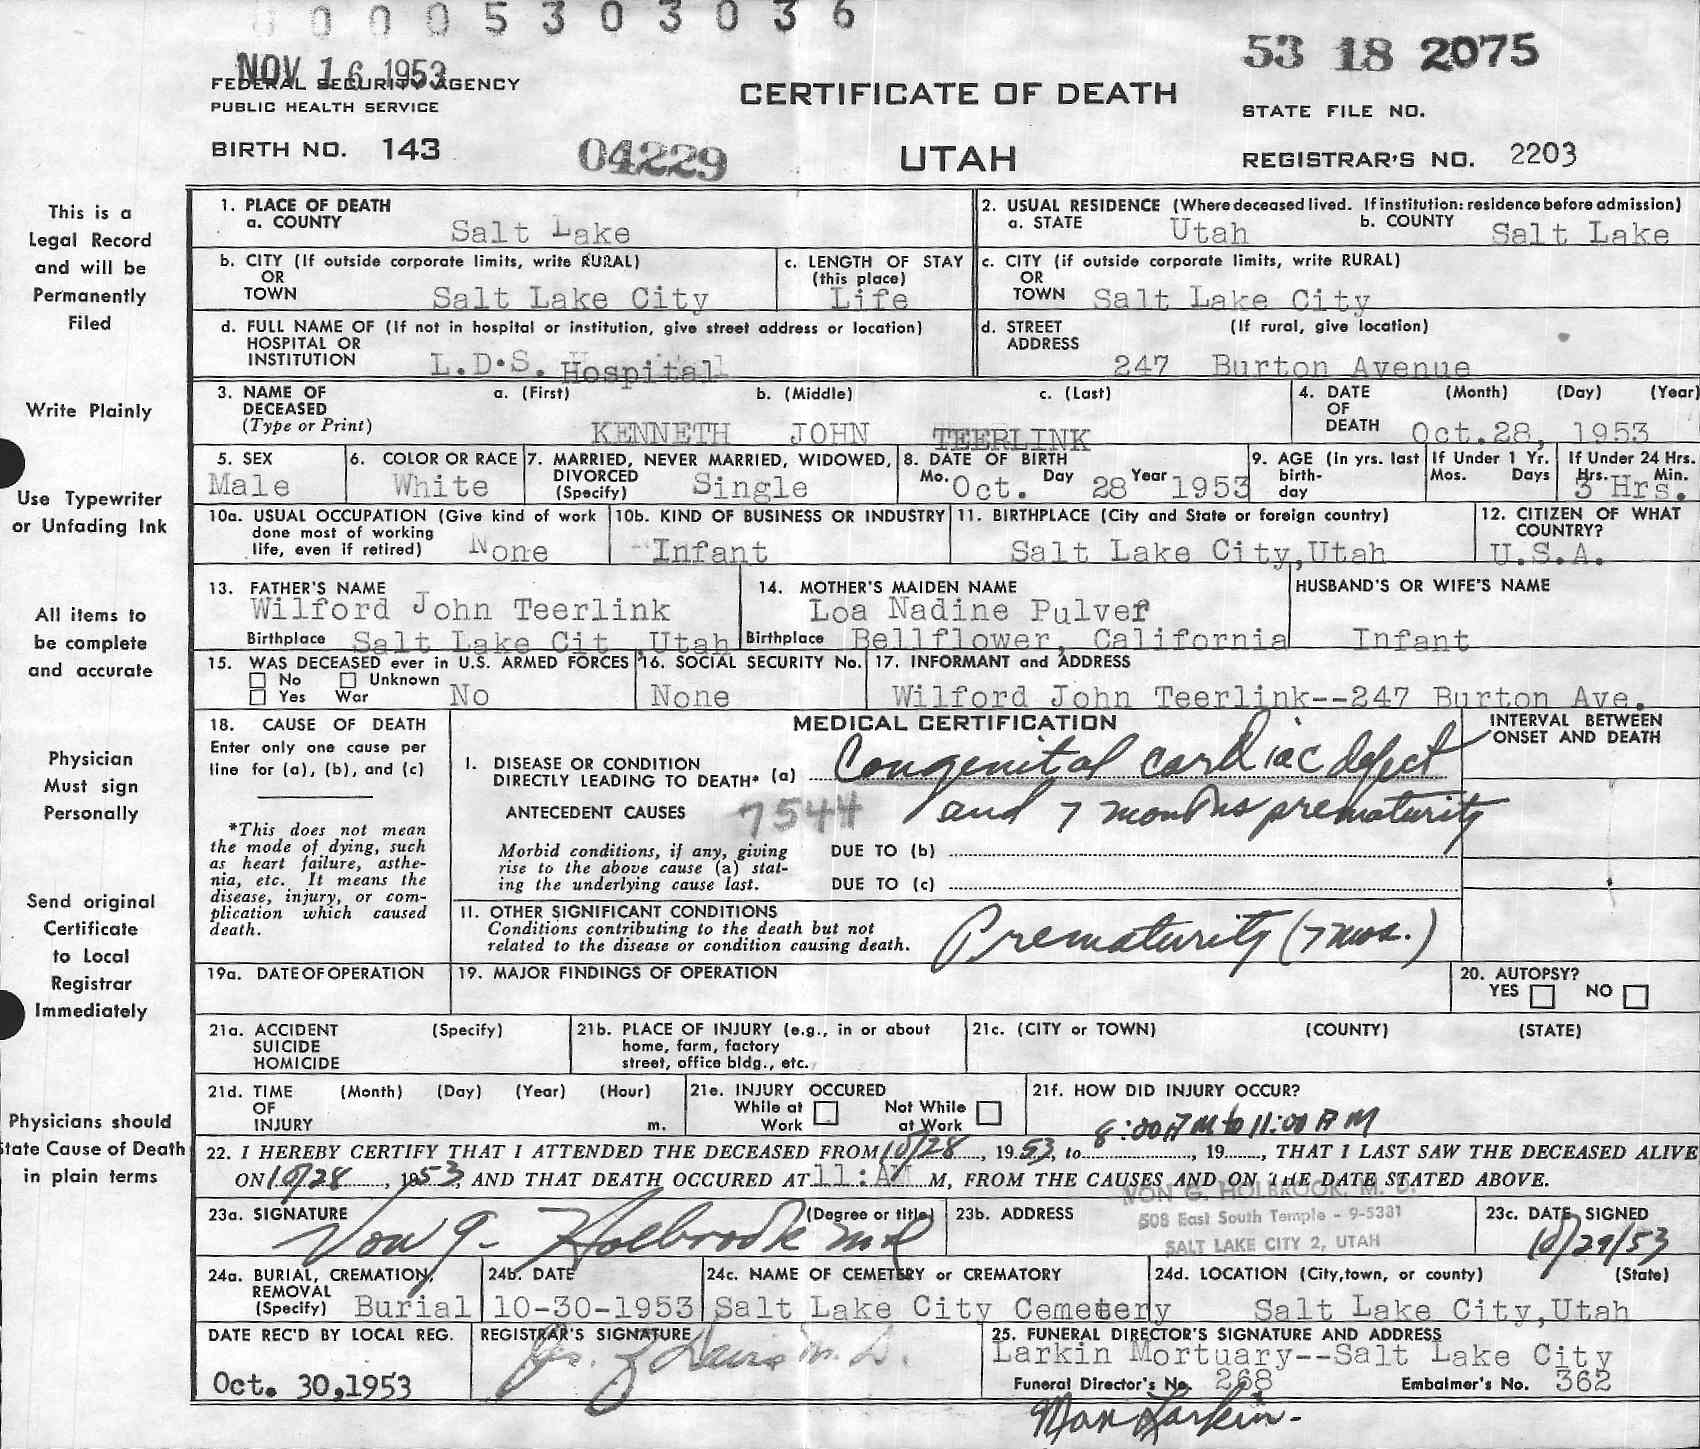 0 0 0 0 5 3 0 3 0 3 6
NOV 16 1953
53 18 2075
FEDERAL SECURITY AGENCY
PUBLIC HEALTH SERVICE
CERTIFICATE OF DEATH
STATE FILE NO.
BIRTH NO. 143
04229
UTAH
REGISTRAR'S NO. 2203
This is a
Legal Record
and will be
Permanently
Filed
Write Plainly
Use Typewriter
or Unfading Ink
All items to
be complete
and accurate
Physician
Must sign
Personally
Send original
Certificate
to Local
Registrar
Immediately
Physicians should
State Cause of Death
in plain terms
1. PLACE OF DEATH
a. COUNTY Salt Lake
2. USUAL RESIDENCE (Where deceased lived. If institution: residence before admission)
a. STATE Utah b. COUNTY Salt Lake
b. CITY (If outside corporate limits, write RURAL)
OR
TOWN Salt Lake City
c. LENGTH OF STAY
(this place)
Life
c. CITY (if outside corporate limits, write RURAL)
OR
TOWN Salt Lake City
d. FULL NAME OF (If not in hospital or institution, give street address or location)
HOSPITAL OR
INSTITUTION L.D.S. Hospital
d. STREET (If rural, give location)
ADDRESS
247 Burton Avenue
3. NAME OF DECEASED
(Type or Print)
a. (First) b. (Middle) c. (Last)
KENNETH JOHN TEERLINK
4. DATE OF DEATH (Month) (Day) (Year)
Oct.28, 1953
5. SEX
Male
6. COLOR OR RACE
White
7. MARRIED, NEVER MARRIED, WIDOWED,
DIVORCED
(Specify) Single
8. DATE OF BIRTH
Mo. Oct. Day 28 Year 1953
9. AGE (In yrs. last
birth-
day
If Under 1 Yr.
Mos. Days
If Under 24 Hrs.
Hrs. Min.
3 Hrs.
10a. USUAL OCCUPATION (Give kind of work
done most of working
life, even if retired) None
10b. KIND OF BUSINESS OR INDUSTRY
Infant
11. BIRTHPLACE (City and State or foreign country)
Salt Lake City,Utah
12. CITIZEN OF WHAT
COUNTRY?
U.S.A.
13. FATHER'S NAME
Wilford John Teerlink
Birthplace Salt Lake Cit ,Utah
14. MOTHER'S MAIDEN NAME
Loa Nadine Pulver
Birthplace Bellflower, California
HUSBAND'S OR WIFE'S NAME
Infant
15. WAS DECEASED ever in U.S. ARMED FORCES
No Unknown
Yes War No
16. SOCIAL SECURITY No.
None
17. INFORMANT and ADDRESS
Wilford John Teerlink--247 Burton Ave.
18. CAUSE OF DEATH
Enter only one cause per
line for (a), (b), and (c)
*This does not mean
the mode of dying, such
as heart failure, asthe-
nia, etc. It means the
disease, injury, or com-
plication which caused
death.
MEDICAL CERTIFICATION
INTERVAL BETWEEN
ONSET AND DEATH
I. DISEASE OR CONDITION
DIRECTLY LEADING TO DEATH* (a) Congenital cardiac defect
ANTECEDENT CAUSES 7544 and 7 months prematurity
Morbid conditions, if any, giving
rise to the above cause (a) stat-
ing the underlying cause last.
DUE TO (b)
DUE TO (c)
II. OTHER SIGNIFICANT CONDITIONS
Conditions contributing to the death but not
related to the disease or condition causing death.
Prematurity (7 mos.)
19a. DATE OF OPERATION
19. MAJOR FINDINGS OF OPERATION
20. AUTOPSY?
YES NO
21a. ACCIDENT (Specify)
SUICIDE
HOMICIDE
21b. PLACE OF INJURY (e.g., in or about
home, farm, factory
street, office bldg., etc.
21c. (CITY or TOWN) (COUNTY) (STATE)
21d. TIME (Month) (Day) (Year) (Hour)
OF
INJURY m.
21e. INJURY OCCURED
While at Work Not While at Work
21f. HOW DID INJURY OCCUR?
8:00 AM to 11:00 AM
22. I HEREBY CERTIFY THAT I ATTENDED THE DECEASED FROM 10/28, 1953, to , 19 , THAT I LAST SAW THE DECEASED ALIVE
ON 10/28, 1953, AND THAT DEATH OCCURED AT 11:AM M, FROM THE CAUSES AND ON THE DATE STATED ABOVE.
23a. SIGNATURE (Degree or title)
Von G. Holbrook MD
23b. ADDRESS
VON G. HOLBROOK, M. D.
508 East South Temple - 9-5331
SALT LAKE CITY 2, UTAH
23c. DATE SIGNED
10/29/53
24a. BURIAL, CREMATION,
REMOVAL
(Specify) Burial
24b. DATE
10-30-1953
24c. NAME OF CEMETERY or CREMATORY
Salt Lake City Cemetery
24d. LOCATION (City,town, or county) (State)
Salt Lake City,Utah
DATE REC'D BY LOCAL REG.
Oct. 30,1953
REGISTRAR'S SIGNATURE
M. D.
25. FUNERAL DIRECTOR'S SIGNATURE AND ADDRESS
Larkin Mortuary--Salt Lake City
Funeral Director's No. 268 Embalmer's No. 362
Max Larkin